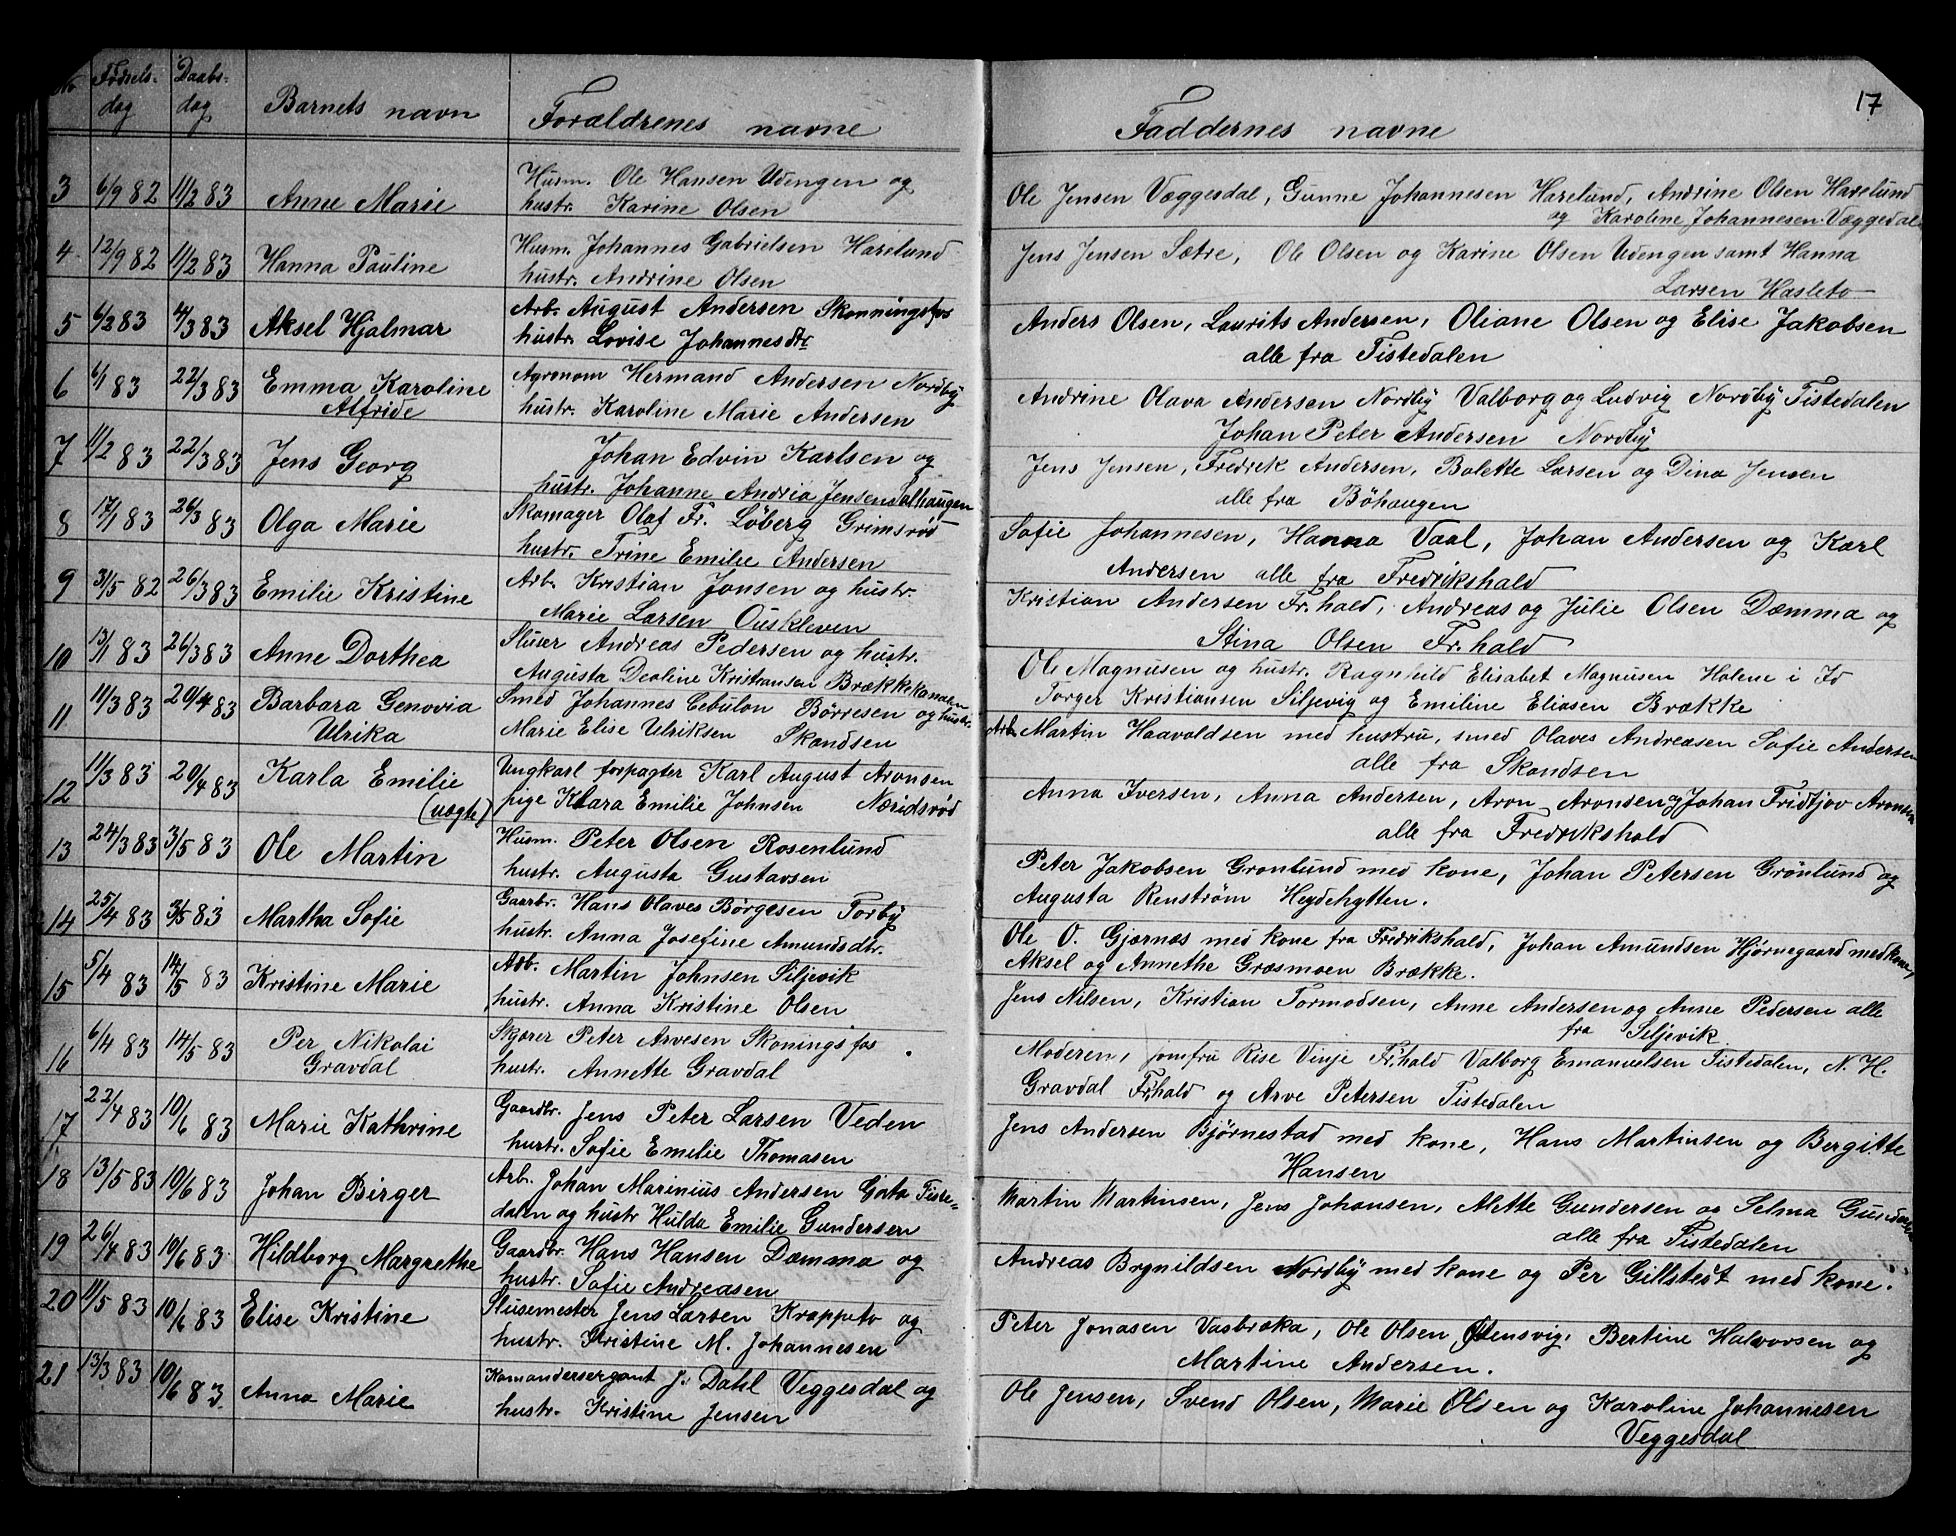 17
No Fødsels- Daabs-
dag dag Barnets navn Forældrenes navne Faddernes navne
3 6/9 82 11/2 83 Anne Marie Husm. Ole Hansen Udengen og
hustr. Karine Olsen
Ole Jensen Væggesdal, Gunne Johannesen Harelund, Andrine Olsen Harelund
og Karoline Johannesen Væggedal
4 12/9 82 11/2 83 Hanna Pauline Husm. Johannes Gabrielsen Harelund
hustr. Andrine Olsen
Jens Jensen Sætre, Ole Olsen og Karine Olsen Udengen samt Hanna
Larsen Hasleto
5 6/2 83 4/3 83 Aksel Hjalmar Arb. August Andersen Skonningsfos
hustr. Lovise Johannesdtr
Anders Olsen, Laurits Andersen, Oliane Olsen og Elise Jakobsen
alle fra Tistedalen
6 6/1 83 22/3 83 Emma Karoline Agronom Hermand Andersen Nordby
Alfride hustr. Karoline Marie Andersen
Andrine Olava Andersen Nordby Valborg og Ludvig Nordby Tistedalen
Johan Peter Andersen Nordby
7 11/2 83 22/3 83 Jens Georg Johan Edvin Karlsen og
hustr. Johanne Andria Jensen Salhaugen
Jens Jensen, Fredrik Andersen, Bolette Larsen og Dina Jensen
alle fra Böhaugen
8 17/1 83 26/3 83 Olga Marie Skomager Olaf Fr. Löberg Grimsrød
hustr. Trine Emilie Andersen
Sofie Johannesen, Hanna Vaal, Johan Andersen og Karl
Andersen alle fra Fredrikshald
9 31/5 82 26/3 83 Emilie Kristine Arb. Kristian Jonsen og hustr.
Marie Larsen Ouskleven
Kristian Andersen Fr.hald, Andreas og Julie Olsen Dæmma og
Stina Olsen Fr.hald
10 13/1 83 26/3 83 Anne Dorthea Sluser Andreas Pedersen og hustr.
Augusta Deoline Kristiansen Brækkekanalen
Ole Magnusen og hustr. Ragnhild Elisabet Magnusen Holene i Id
Torger Kristiansen Siljevig og Emiline Eliasen Brække
11 11/3 83 20/4 83 Barbara Genovia Smed Johannes Cebulon Börresen og hustr.
Ulrika Marie Elise Ulriksen Skandsen
Arb. Martin Haavaldsen med hustru, smed Olaves Andreasen Sofie Andersen
alle fra Skandsen
12 11/3 83 20/4 83 Karla Emilie Ungkarl forpagter Karl August Aronsen
(uægte) pige Klara Emilie Johnsen Næridsrød
Anna Iversen, Anna Andersen, Aron Aronsen og Johan Fridtjov Aronsen
alle fra Fredrikshald
13 24/3 83 3/5 83 Ole Martin Husm. Peter Olsen Rosenlund
hustr. Augusta Gustavsen
Peter Jakobsen Grønlund med kone, Johan Petersen Grønlund og
Augusta Renstrøm Heydehytten.
14 25/4 83 3/5 83 Martha Sofie Gaarbr. Hans Olaves Börgesen Torby
hustr. Anna Josefine Amundsdtr.
Ole O. Gjærnæs med kone fra Fredrikshald, Johan Amundsen Hjørnegaard med kone,
Aksel og Annethe Græsmoen Brække.
15 5/4 83 14/5 83 Kristine Marie Arb. Martin Johnsen Siljevik
hustr. Anna Kristine Olsen
Jens Nilsen, Kristian Tormodsen, Anne Andersen og Anne Pedersen alle
fra Siljevik
16 6/4 83 14/5 83 Per Nikolai Skjærer Peter Arvesen Skoningsfos
Gravdal hustr. Annette Gravdal
Moderen, jomfru Rise Vinje Fr.hald Valborg Emanuelsen Tistedalen, N. H.
Gravdal Fr.hald og Arve Petersen Tistedalen
17 22/4 83 10/6 83 Marie Kathrine Gaardbr. Jens Peter Larsen Veden
hustr. Sofie Emilie Thomasen
Jens Andersen Bjørnestad med kone, Hans Martinsen og Bergitte
Hansen
18 13/5 83 10/6 83 Johan Birger Arb. Johan Marinius Andersen Gjota Tiste-
dalen og hustr Hulda Emilie Gundersen
Martin Martinsen, Jens Johansen, Mette Gundersen og Selma Gundersen
alle fra Tistedalen
19 26/4 83 10/6 83 Hildborg Margrethe Gaardbr. Hans Hansen Dæmma og
hustr. Sofie Andreasen
Andreas Brynildsen Nordby med kone og Per Gillstedt med kone.
20 11/5 83 10/6 83 Elise Kristine Slusemester Jens Larsen Krappeto og
hustr. Kristine M. Johannesen
Peter Jonasen Vasbræka, Ole Olsen Stensvig, Bertine Halvorsen og
Martine Andersen.
21 13/3 83 10/6 83 Anna Marie Komandersergant J. Dahl Veggesdal og
hustr. Kristine Jensen
Ole Jensen, Svend Olsen, Marie Olsen og Karoline Johannesen
Veggesdal